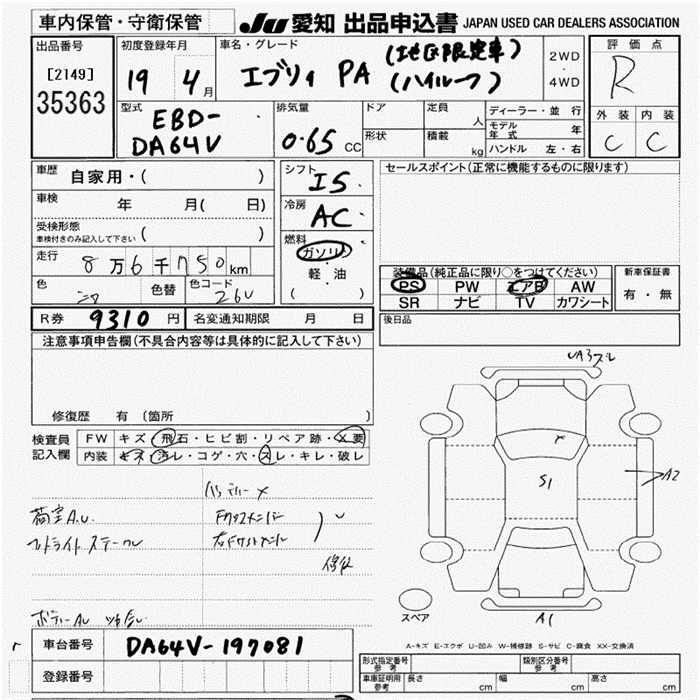 車内保管・守衛保管
JU 愛知 出品申込書 JAPAN USED CAR DEALERS ASSOCIATION
出品番号
[2149]
35363
初度登録年月
19 4月
車名・グレード
エブリィ PA (地区限定車)
(ハイルーフ)
2WD
・
4WD
評価点
R
外装 内装
C C
型式
EBD-
DA64V
排気量
0.65 CC
ドア
形状
定員 人
積載 kg
ディーラー・並行
モデル年式 年
ハンドル 左・右
車歴 自家用・( )
車検 年 月( 日)
受検形態
車検付きのみ記入して下さい ( )
走行 8万6千750km
色 色替 色コード
26U
シフト I5
冷房 AC
燃料
ガソリン
軽・油
( )
セールスポイント(正常に機能するものに限ります)
装備品(純正品に限り○をつけてください)
PS PW エアB AW
SR ナビ TV カワシート
新車保証書
有・無
R券 9310円 名変通知期限 月 日
後日品
注意事項申告欄(不具合内容等は具体的に記入して下さい)
修復歴 有(箇所 )
検査員
記入欄
FW キズ・飛石・ヒビ割・リペア跡・X要
内装 キズ・汚レ・コゲ・穴・スレ・キレ・破レ
バッテリーX
荷室A.U.
UA3スレ
S1
A2
A1
スペア
A-キズ E-エクボ U-凹み W-補修跡 S-サビ C-腐食 XX-交換済
車台番号 DA64V-197081
登録番号
形式指定番号
参考
類別区分番号
参考
車庫証明用
参考
長さ cm 幅 cm 高さ cm